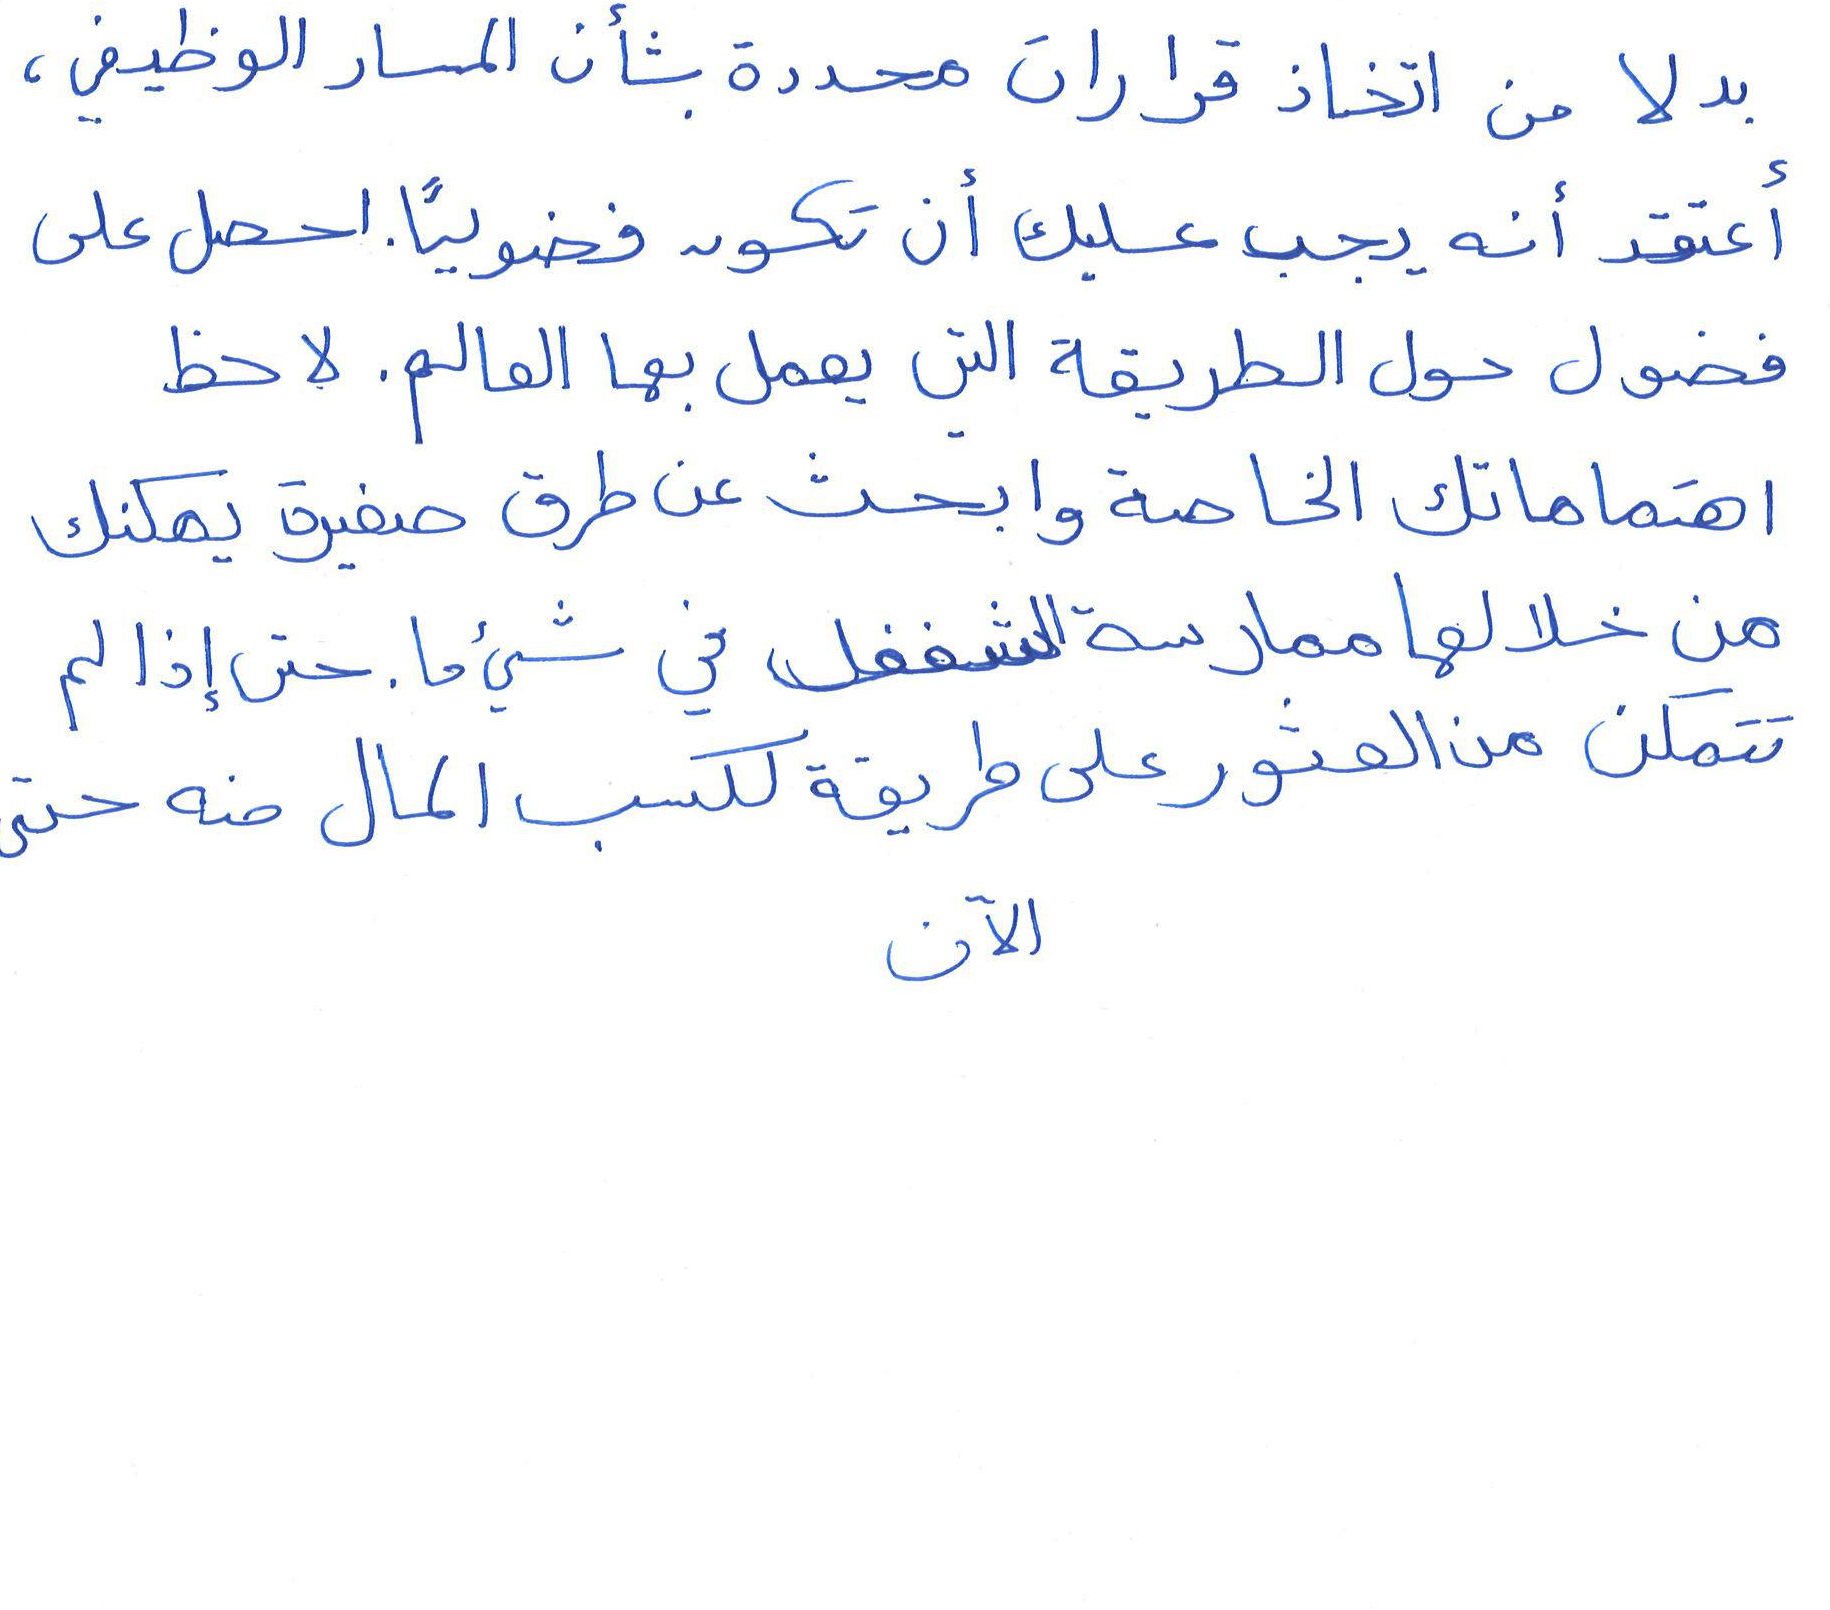 بدلا من اتخاذ قرارات محددة بشأن المسار الوظيفي،
أعتقد أنه يجب عليك أن تكون فضوليًا. احصل على
فضول حول الطريقة التي يعمل بها العالم. لاحظ
اهتماماتك الخاصة وابحث عن طرق صغيرة يمكنك
من خلالها ممارسة الشغف في شيء ما. حتى إذا لم
تتمكن من العثور على طريقة لكسب المال منه حتى
الآن